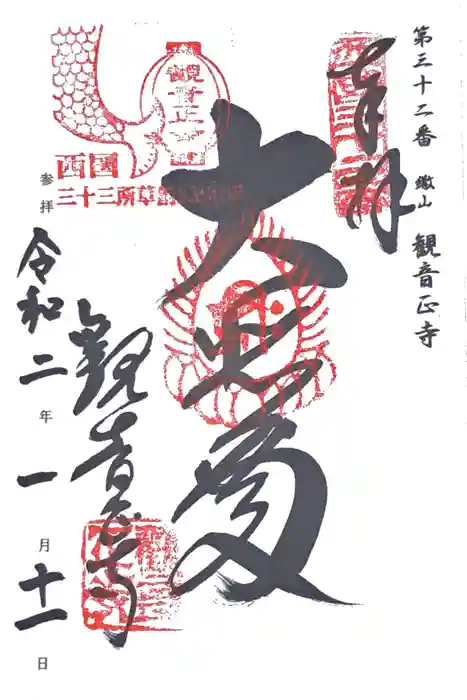 第三十二番 繖山 観音正寺
奉拝
大悲殿
西国
三十三所草創
観音正寺
参拝
令和二年一月十一日